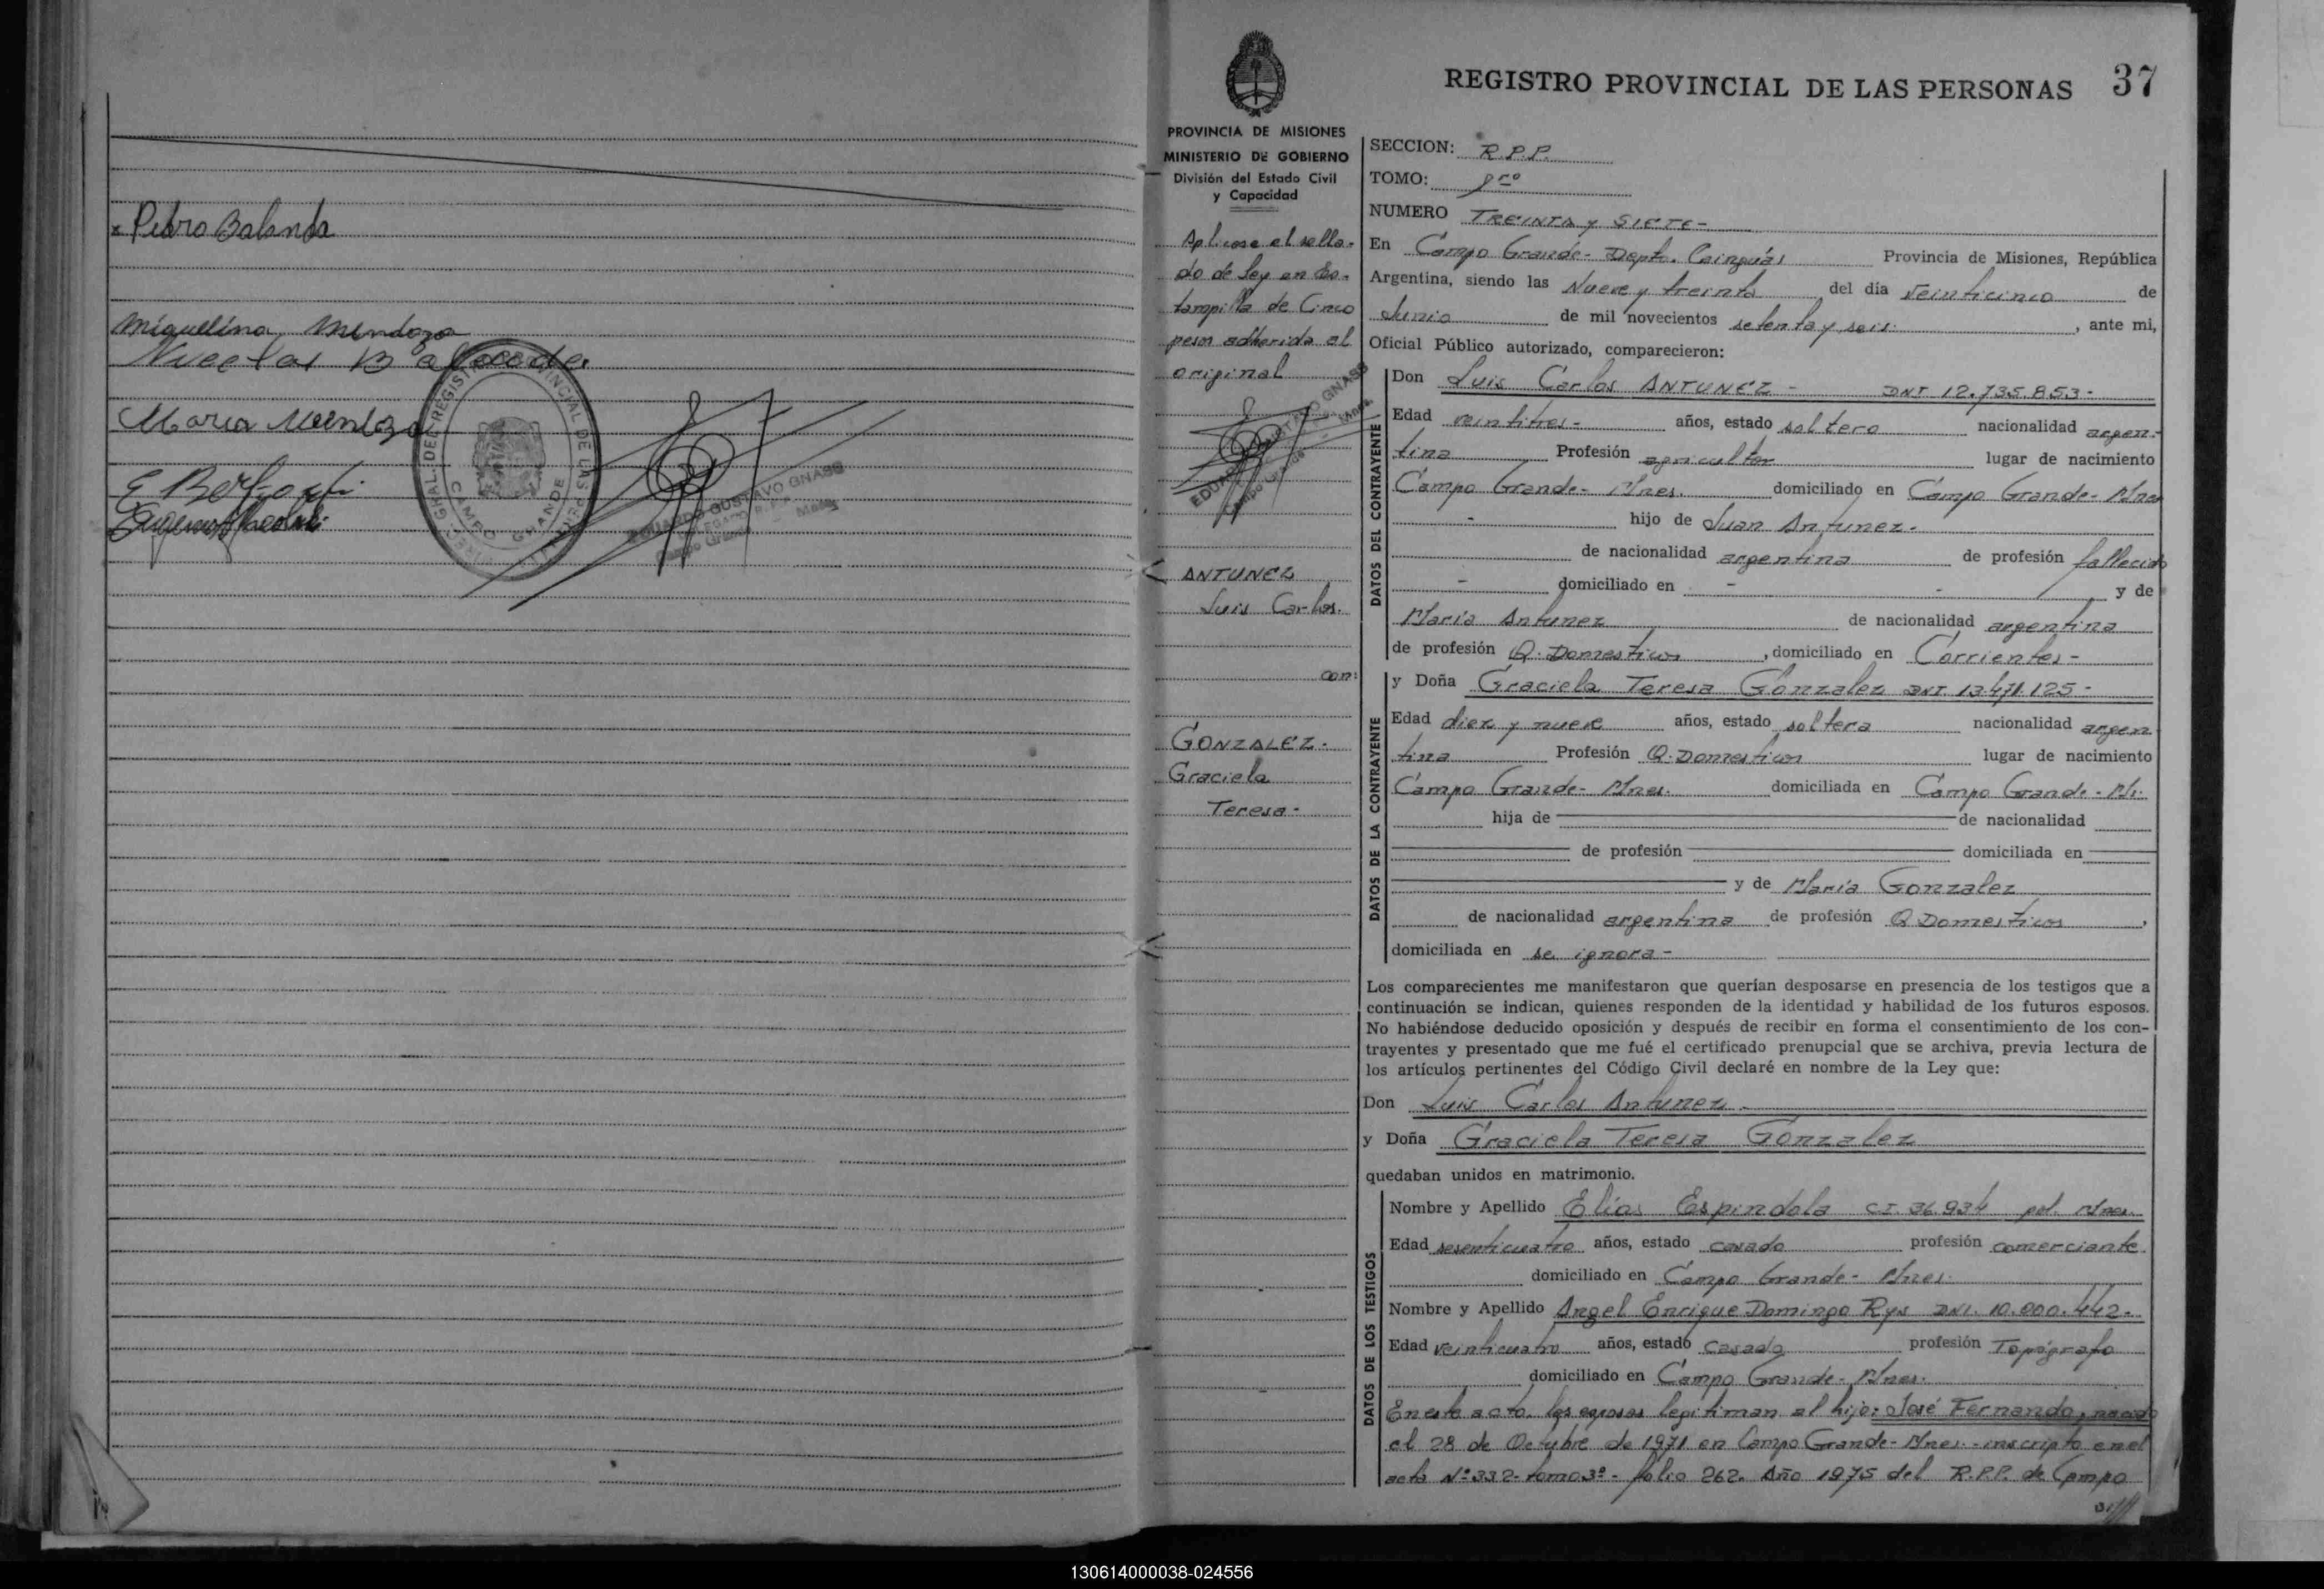 x Pedro Balanda
Miguelina Mendoza
Maria Mendoza
CAMPO GRANDE
EDUARDO GUSTAVO GNASS
Campo Grande - Mnes.
REGISTRO PROVINCIAL DE LAS PERSONAS 37
PROVINCIA DE MISIONES
MINISTERIO DE GOBIERNO
División del Estado Civil
y Capacidad
Aplicose el sella-
do de ley en Es-
tampilla de Cinco
pesos adherida al
original
EDUARDO GUSTAVO GNASS
Campo Grande - Mnes.
ANTUNEZ
Luis Carlos.
con:
GONZALEZ.
Graciela
Teresa-
SECCION: R.P.P.
TOMO: 1ro
NUMERO TREINTA y SIETE-
En Campo Grande- Depto. Cainguás Provincia de Misiones, República
Argentina, siendo las Nueve y treinta del día veinticinco de
Junio de mil novecientos setenta y seis. , ante mi,
Oficial Público autorizado, comparecieron:
DATOS DEL CONTRAYENTE
Don Luis Carlos ANTUNEZ - DNI 12.735.853-
Edad veintitres- años, estado soltero nacionalidad argen-
tina Profesión agricultor lugar de nacimiento
Campo Grande- Mnes. domiciliado en Campo Grande- Mnes
- hijo de Juan Antunez.
de nacionalidad argentina de profesión fallecido
- domiciliado en - - y de
Maria Antunez de nacionalidad argentina
de profesión Q. Domesticos , domiciliado en Corrientes-
DATOS DE LA CONTRAYENTE
y Doña Graciela Teresa Gonzalez DNI 13.471.125-
Edad diez y nueve años, estado soltera nacionalidad argen
tina Profesión Q. Domesticos lugar de nacimiento
Campo Grande- Mnes. domiciliada en Campo Grande- Ms.
hija de de nacionalidad
de profesión domiciliada en
y de Maria Gonzalez
de nacionalidad argentina de profesión Q Domesticos ,
domiciliada en se ignora-
Los comparecientes me manifestaron que querían desposarse en presencia de los testigos que a
continuación se indican, quienes responden de la identidad y habilidad de los futuros esposos.
No habiéndose deducido oposición y después de recibir en forma el consentimiento de los con-
trayentes y presentado que me fué el certificado prenupcial que se archiva, previa lectura de
los artículos pertinentes del Código Civil declaré en nombre de la Ley que:
Don Luis Carlos Antunez -
y Doña Graciela Teresa Gonzalez
quedaban unidos en matrimonio.
DATOS DE LOS TESTIGOS
Nombre y Apellido Elías Espindola CI 36.934 pol. Mnes.
Edad sesenticuatro años, estado casado profesión comerciante
domiciliado en Campo Grande- Mnes.
Nombre y Apellido Angel Enrique Domingo Rys DNI. 10.000.442-
Edad veinticuatro años, estado casado profesión Topógrafo
domiciliado en Campo Grande- Mnes.
En este acto los esposos legitiman al hijo: José Fernando, nacido
el 28 de Octubre de 1971 en Campo Grande- Mnes.- inscripto en el
acta Nº 332- tomo 3º- folio 262. Año 1975 del R.P.P. de Campo
130614000038-024556